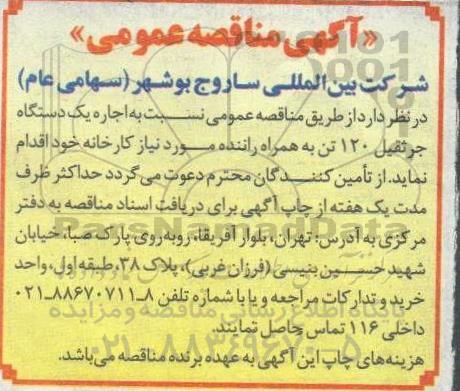 «آگهی مناقصه عمومی»
شرکت بین‌المللی ساروج بوشهر (سهامی عام)
در نظر دارد از طریق مناقصه عمومی نسبت به اجاره یک دستگاه
جرثقیل ۱۲۰ تن به همراه راننده مورد نیاز کارخانه خود اقدام
نماید. از تأمین کنندگان محترم دعوت می‌گردد حداکثر ظرف
مدت یک هفته از چاپ آگهی برای دریافت اسناد مناقصه به دفتر
مرکزی به آدرس: تهران، بلوار آفریقا، روبه‌روی پارک صبا، خیابان
شهید حسین بنیسی (فرزان غربی)، پلاک ۳۸، طبقه اول، واحد
خرید و تدارکات مراجعه و یا با شماره تلفن ۸-۸۸۶۷۰۷۱۱-۰۲۱
داخلی ۱۱۶ تماس حاصل نمایند.
هزینه‌های چاپ این آگهی به عهده برنده مناقصه می‌باشد.
ParsNamadData
پایگاه اطلاع رسانی مناقصه و مزایده
۰۲۱-۸۸۳۴۹۶۷۰-۵